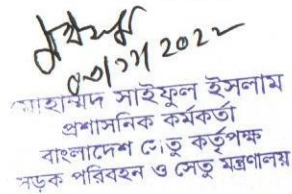 2022
মোহাম্মদ সাইফুল ইসলাম
প্রশাসনিক কর্মকর্তা
বাংলাদেশ সেতু কর্তৃপক্ষ
সড়ক পরিবহন ও সেতু মন্ত্রণালয়